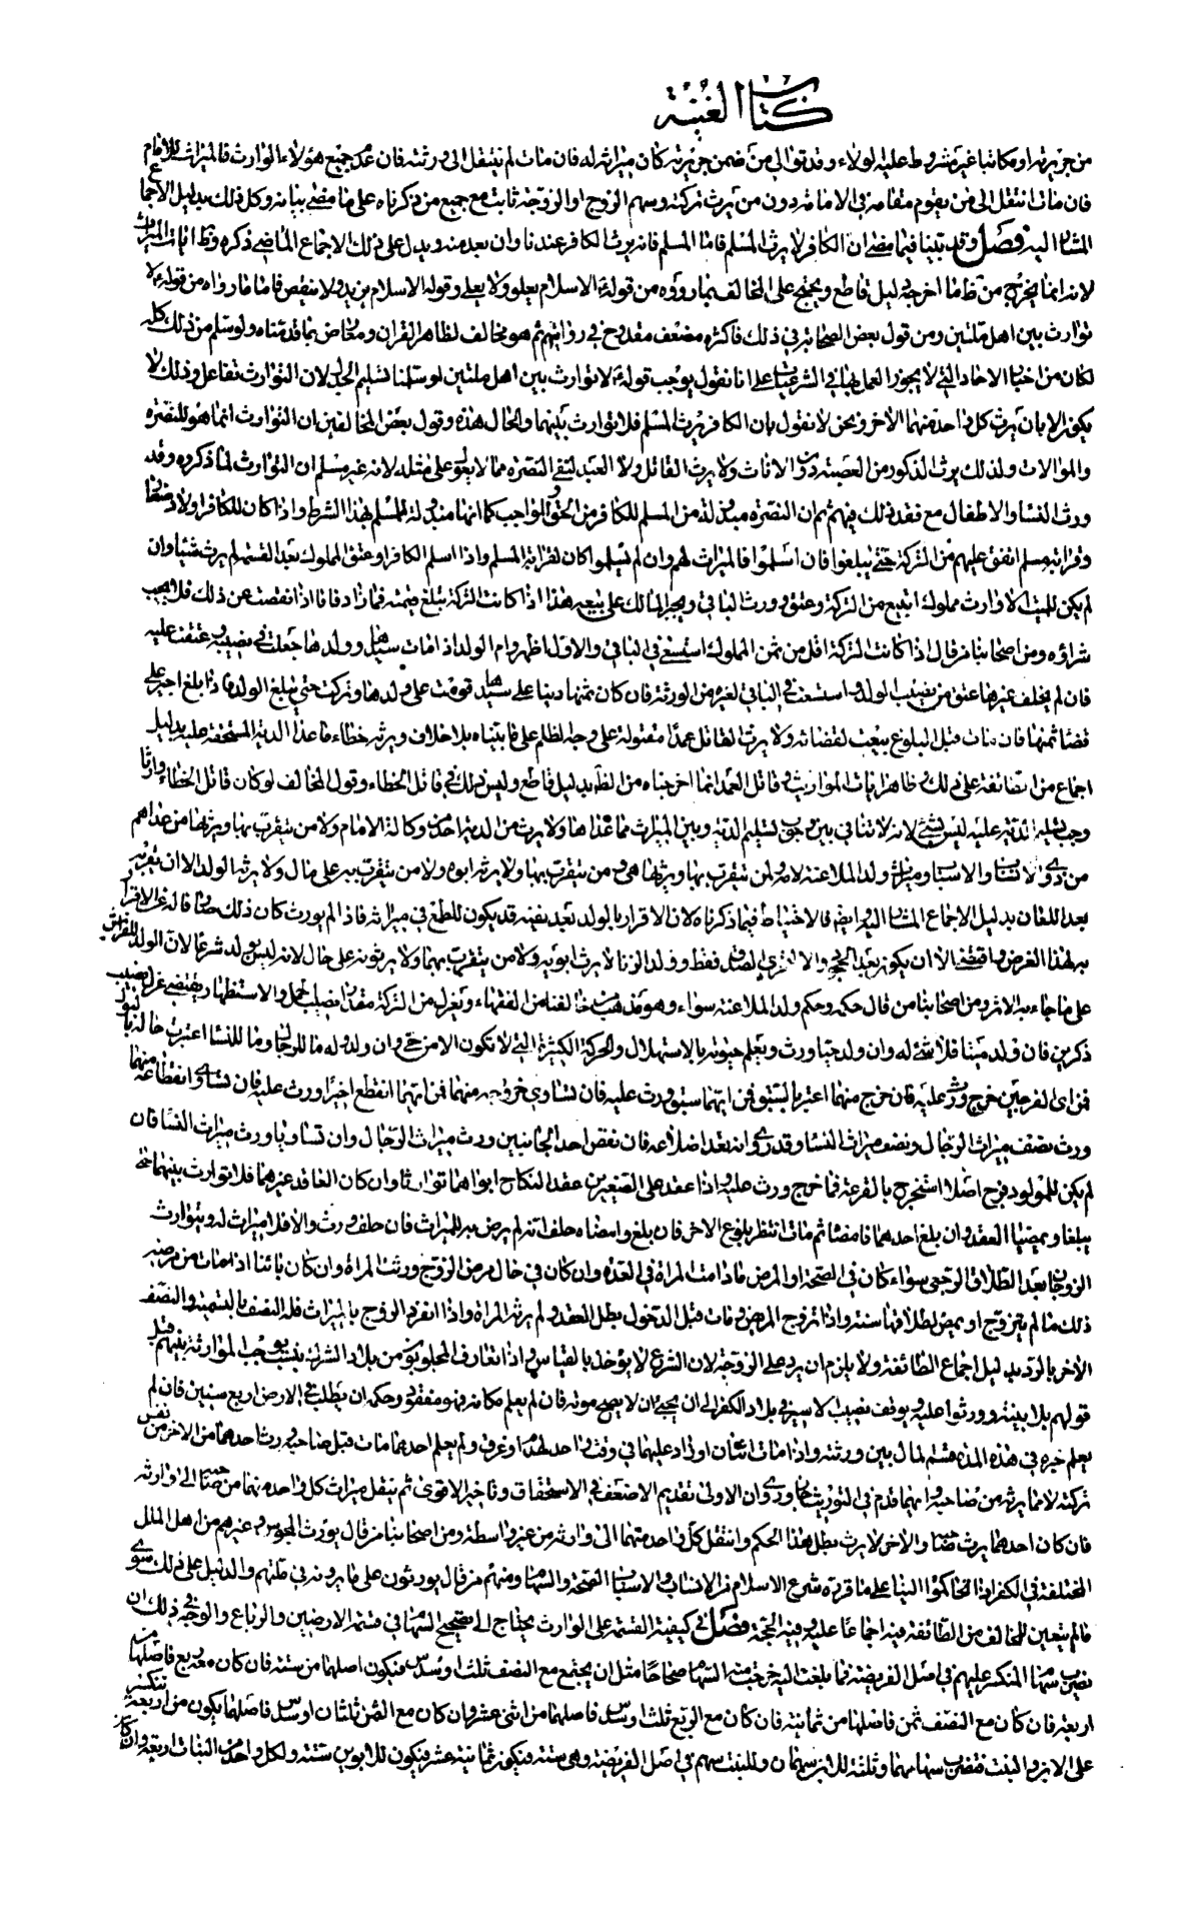 كتاب الغنية
من جريرته او مكاتبا غير مشروط عليه الولاء وقد توالى من ضمن جريرته كان ميراثه له فان مات لم ينتقل الى ورثته فان عدم جميع هؤلاء الوارث فالميراث للامام
فان مات انتقل الى من يقوم مقامه في الامامة دون من يرث تركته وسهم الزوج او الزوجة ثابت مع جميع من ذكرناه على ما مضى بيانه وكل ذلك بدليل الاجماع
المشار اليه فصل وقد بينا فيما مضى ان الكافر لا يرث المسلم فاما المسلم فانه يرث الكافر عندنا وان بعد منه ويدل على ذلك الاجماع الماضي ذكره وظاهر ايات الميراث
لانه انما يخرج من ظاهرها ما اخرجه دليل قاطع ويحتج على المخالف بما رووه من قوله الاسلام يعلو ولا يعلى وقوله الاسلام يزيد ولا ينقص فاما ما رواه من قوله لا
توارث بين اهل ملتين ومن قول بعض الصحابة في ذلك فاكثره مضعف مقدوح في رواتهم ثم هو مخالف لظاهر القران ومعارض بما قدمناه ولو سلم من ذلك كله
لكان من اخبار الاحاد التي لا يجوز العمل بها في الشرعيات على انا نقول بموجب قوله لا توارث بين اهل ملتين لو سلمنا تسليم الجدل لان التوارث تفاعل وذلك لا
يكون الا بان يرث كل واحد منهما الاخر ونحن لا نقول بان الكافر يرث المسلم فلا توارث بينهما والحال هذه وقول بعض المخالفين ان التوارث انما هو للنصرة
والموالات ولذلك يرث الذكور من العصبة دون الاناث ولا يرث القاتل ولا العبد لنفي النصرة مما لا يعول على مثله لانه غير مسلم ان التوارث لما ذكروه وقد
ورث النساء والاطفال مع فقد ذلك فيهم ثم ان النصرة مبذولة من المسلم للكافر من الحق الواجب كما انها مبذولة للمسلم بهذا الشرط واذا كان للكافر اولاد صغار
وقرابة مسلم انفق عليهم من التركة حتى يبلغوا فان اسلموا فالميراث لهم وان لم يسلموا كان لقرابته المسلم واذا اسلم الكافر او عتق المملوك بعد القسمة لم يرث شيئا وان
لم يكن للميت الا وارث مملوك ابتيع من التركة وعتق وورث الباقي ويجبر المالك على بيعه هذا اذا كانت التركة تبلغ قيمته فما زاد فاما اذا نقصت عن ذلك فلا يجب
شراؤه ومن اصحابنا من قال اذا كانت التركة اقل من ثمن المملوك استسعى في الباقي والاول اظهر وام الولد اذا مات سيدها وولدها جعلت في نصيبه وعتقت عليه
فان لم يخلف غيرها عتق من نصيب الولد واستسعت في الباقي لغيره من الورثة فان كان ثمنها دينا على سيدها قومت على ولدها وتركت حتى يبلغ الولد فاذا بلغ اجبر على
قضاء ثمنها فان مات قبل البلوغ بيعت لقضائه ولا يرث القاتل عمدا مقتوله على وجه الظلم على ما بيناه بلا خلاف ويرثه خطاء ما عدا الدية المستحقة عليه بدليل
اجماع من الطائفة على ذلك وظاهر ايات المواريث وقاتل العمد انما اخرجناه من الظاهر بدليل قاطع وليس ذلك في قاتل الخطاء وقول المخالف لو كان قاتل الخطاء وارثا
وجب تسليم الدية عليه ليس بشئ لانه لا تنافي بين وجوب تسليم الدية وبين الميراث مما عداها ولا يرث من الدية احد من كلالة الام ولا من يتقرب بها ويرثها من عداهم
من ذوي الانساب والاسباب وميراث ولد الملاعنة لامه ولمن يتقرب بها ويرثها هو ومن يتقرب بها ولا يرثه ابوه ولا من يتقرب به على حال ولا يرثه الولد الا ان يقر به
بعد اللعان بدليل الاجماع المشار اليه وايضا فالاحتياط فيما ذكرناه لان الاقرار بالولد بعد نفيه قد يكون للطمع في ميراثه فاذا لم يورث كان ذلك صارفا له عن الاقرار
به لهذا الغرض واقتضى الا ان يكون بعد الجحود الا لتحري الصدق فقط وولد الزنا لا يرث ابويه ولا من يتقرب بهما ولا يرثونه على حال لانه ليس بولد شرعا لان الولد للفراش
على ما جاء به الاثر ومن اصحابنا من قال حكمه وحكم ولد الملاعنة سواء وهو مذهب من خالفنا من الفقهاء ويعزل من التركة مقدار نصيب الحمل والاستظهار يقتضي عزل نصيب
ذكرين فان ولد ميتا فلا شئ له وان ولد حيا ورث ويعلم حيوته بالاستهلال والحركة الكثيرة التي لا تكون الا من حي وان ولد وله ما للرجال وما للنساء اعتبرت حاله بالبول
فمن اي الفرجين خرج ورث عليه فان خرج منهما اعتبر بالسبق فمن ايهما سبق ورث عليه فان تساوى خروجه منهما فمن ايهما انقطع اخيرا ورث عليه فان تساوى انقطاعه منهما
ورث نصف ميراث الرجال ونصف ميراث النساء وقد روي انه تعد اضلاعه فان نقص احد الجانبين ورث ميراث الرجال وان تساويا ورث ميراث النساء فان
لم يكن للمولود فرج اصلا استخرج بالقرعة فما خرج ورث عليه واذا عقد على الصغيرين عقد النكاح ابواهما توارثا وان كان العاقد غيرهما فلا توارث بينهما حتى
يبلغا ويمضيا العقد وان بلغ احدهما فامضاه ثم مات انتظر بلوغ الاخر فان بلغ وامضاه حلف انه لم يرض به للميراث فان حلف ورث والا فلا ميراث له ويتوارث
الزوجان بعد الطلاق الرجعي سواء كان في الصحة او المرض ما دامت المراة في العدة وان كان في حال مرض الزوج ورثته المراة وان كان بائنا اذا مات من مرضه
ذلك ما لم يتزوج او يمض لطلاقها سنة واذا تزوج المريض ومات قبل الدخول بطل العقد ولم يرثه المراة واذا انفرد الزوج بالميراث فله النصف بالتسمية والنصف
الاخر بالرد بدليل اجماع الطائفة ولا يلزم ان يرد على الزوجة لان الشرع لا يؤخذ بالقياس واذا تعارف المجلوبون من بلاد الشرك بنسب يوجب الموارثة بينهم قبل
قولهم بلا بينة وورثوا عليه ويوقف نصيب الاسير في بلاد الكفر الى ان يجيئ او يصح موته فان لم يعلم مكانه فهو مفقود وحكمه ان يطلب في الارض اربع سنين فان لم
يعلم خبره في هذه المدة قسم المال بين ورثته واذا مات اثنان او زاد عليهما في وقت واحد لهدم او غرق ولم يعلم احدهما مات قبل صاحبه ورث احدهما من الاخر من نفس
تركته لا مما يرثه من صاحبه وايهما قدم في التوريث جاز وروي ان الاولى تقديم الاضعف في الاستحقاق وتاخير الاقوى ثم ينقل ميراث كل واحد منهما من صاحبه الى وارثه
فان كان احدهما يرث صاحبه والاخر لا يرث بطل هذا الحكم وانتقل كل واحد منهما الى وارثه من غير واسطة ومن اصحابنا من قال يورث المجوس وغيرهم من اهل الملل
المختلفة في الكفر اذا تحاكموا الينا على ما قرره شرع الاسلام من الانساب والاسباب الصحيحة والسهام ومنهم من قال يورثون على ما يرونه في ملتهم والدليل على ذلك سوى
ما لم يتعين للمخالف من الطائفة فيه اجماعا عليه وفيه الحجة فصل في كيفية القسمة على الوارث يحتاج الى تصحيح السهام في قسمة الارضين والرباع والوجه في ذلك ان
تضرب سهام المنكسر عليهم في اصل الفريضة فما بلغت اليه خرجت منه السهام صحاحا مثل ان يجتمع مع النصف ثلث او سدس فيكون اصلها من ستة فان كان معه ربع فاصلها من
اربعة فان كان مع النصف ثمن فاصلها من ثمانية فان كان مع الربع ثلث او سدس فاصلها من اثنى عشر وان كان مع الثمن ثلثان او سدس فاصلها يكون من اربعة
على الابن والبنت فتضرب سهامهما وثلثة للابن سهمان وللبنت سهم في اصل الفريضة وهي ستة فيكون ثمانية عشر فيكون للابوين ستة ولكل واحد من البنات اربعة وان كان